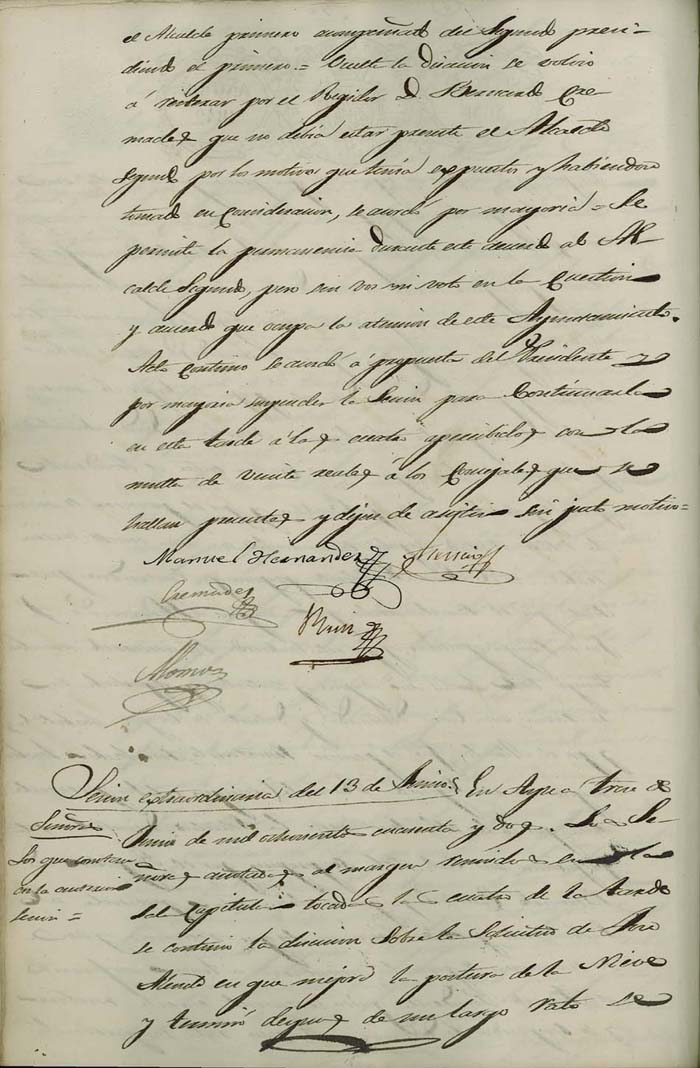 el Alcalde primero acompañado del Segundo presi-
diendo el primero.= Vuelta la discusion se volvió
á reiterar por el Regidor D. Bernardo Cre-
mades que no debia estar presente el Alcalde
Segundo por los motivos que tenia expuestos y habiendose
tomado en Consideracion, se acordó por mayoria = Se
permite la permanencia durante este acuerdo al Al-
calde Segundo, pero sin vos ni voto en la Cuestion
y acuerdo que ocupa la atencion de este Ayuntamiento.
Acto continuo se acordó á propuesta del Presidente y
por mayoria suspender la Sesion para Continuarla
en esta tarde á las cuatro apercibidos con la
multa de veinte reales á los Concejales que se
hallan presentes y dejen de asistir sin justo motivo=
Manuel Hernandez
Cremades
Ruiz
Alonso
Sesion extraordinaria del 13 de Junio. En Aspe a trece de
Señores
Junio de mil ochocientos cincuenta y dos. Los Se-
Los que constan
ñores anotados al margen reunidos en la
en la anterior
sesion =
Sala Capitular tocadas las cuatro de la tarde
se continuó la discusion sobre la Solicitud de José
en que mejora la postura de la Nieve
y terminó despues de un largo rato se